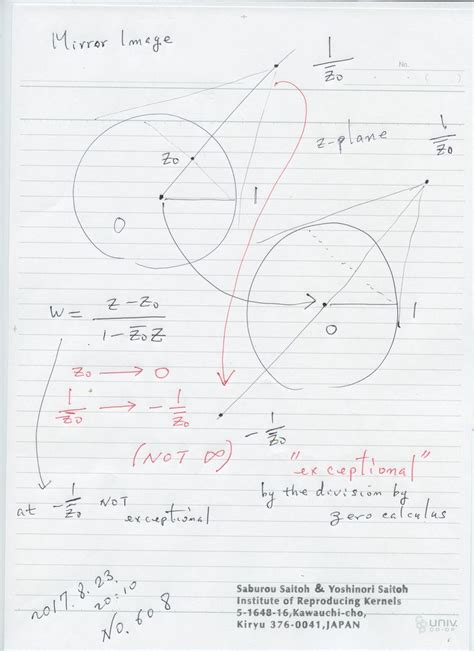 Mirror Image
1/z̄₀
No.
z-plane
1/z̄₀
z₀
1
0
1
0
w = (z - z₀)/(1 - z̄₀z)
z₀ → 0
1/z̄₀ → -1/z̄₀
-1/z̄₀
(NOT ∞)
"exceptional"
by the division by
zero calculus
at -1/z̄₀ NOT
exceptional
2017.8.23.
20:10
No. 608
Saburou Saitoh & Yoshinori Saitoh
Institute of Reproducing Kernels
5-1648-16,Kawauchi-cho,
Kiryu 376-0041,JAPAN
UNIV.
CO-OP